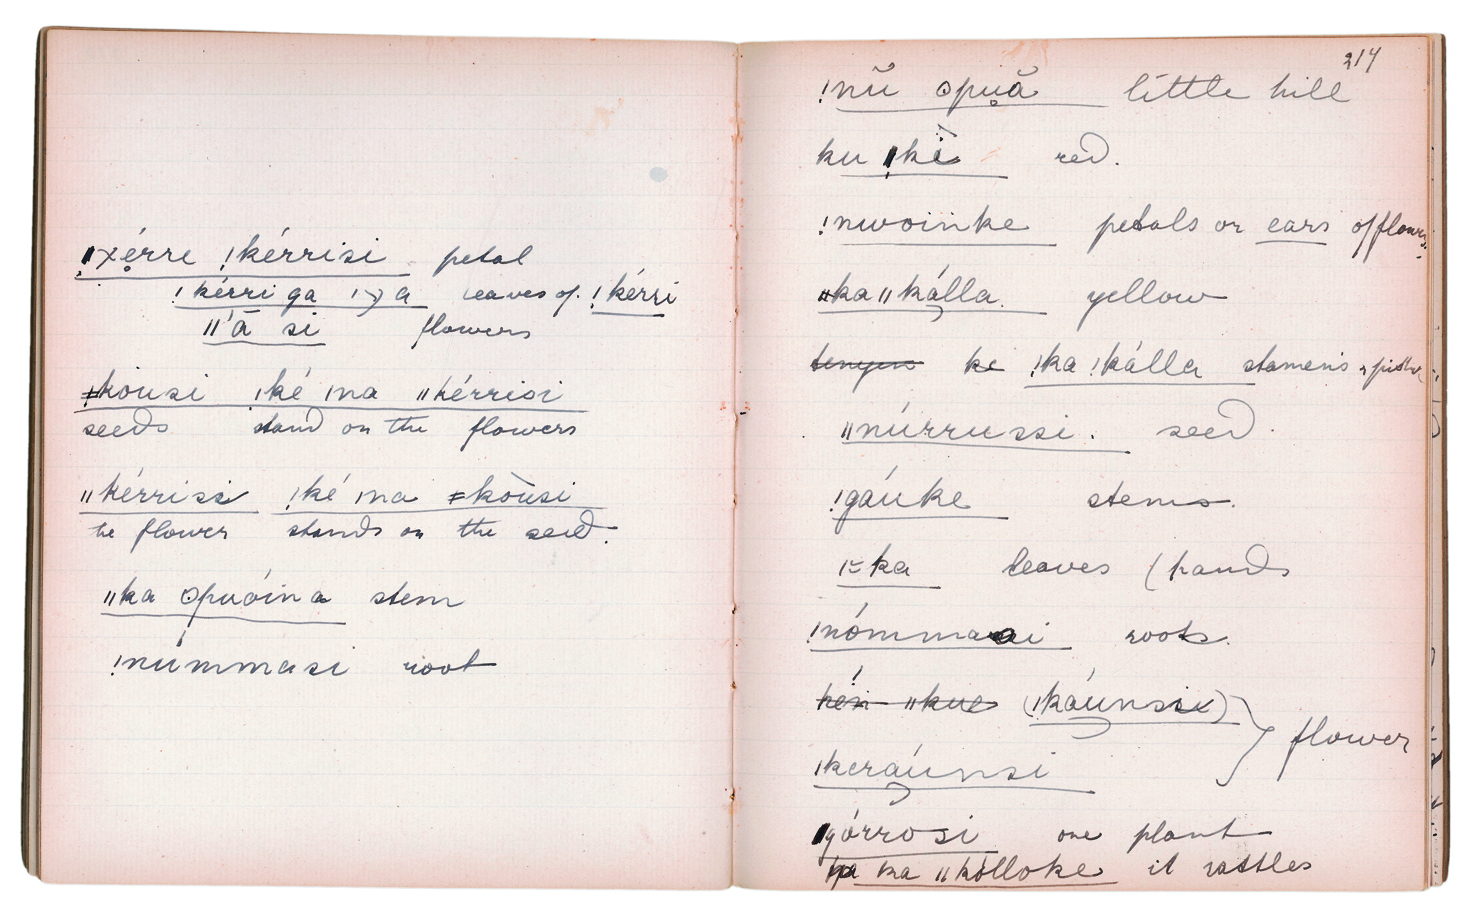 !xérre !kérrisi petal
!kérri ga leaves of !kérri
ǁ'ā si flowers
ǂkóusi !ké ǀna ǁkérrisi
seeds stand on the flowers
ǁkérrissi !ké ǀna ǂkòusi
he flower stands on the seed.
ǁka opuóina stem
!númmasi root
214
!nŭ opuă little hill
ku !kè red.
!nwoinke petals or ears of flowers
ǁka ǁkálla. yellow
ke !ka !kálla stamens
ǁnúrrussi. seed
!gáuke stems.
ka leaves (hands
!nómmaai roots.
ǁkue (!káunssi) flower
!keraúnsi
ǀgórrosi one plant
ka ǁkólloke it rattles